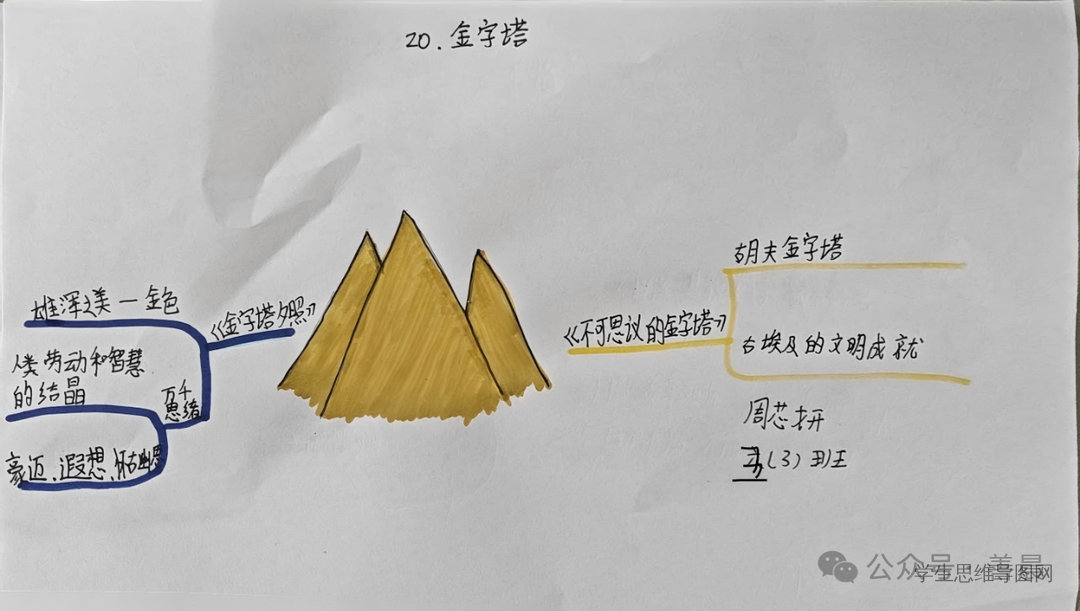 20.金字塔
《金字塔夕照》
雄浑之美一金色
万千
思绪
人类劳动和智慧
的结晶
豪迈、遐想、怀古幽思
《不可思议的金字塔》
胡夫金字塔
古埃及的文明成就
周芯
(3)班
公众号·善昌
学生思维导图网